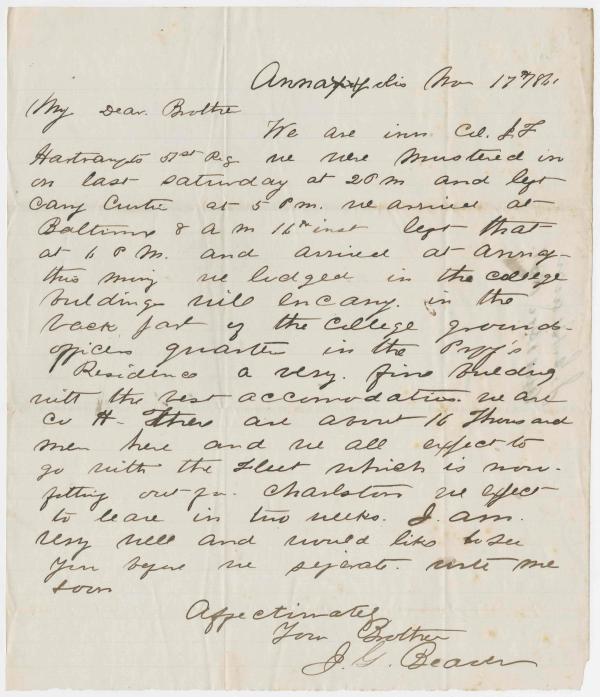 Annapolis Nov 17th /61
My Dear Brother
We are in Col. J F
Hartranfts 51st Reg we were mustered in
on last saturday at 2 P m and left
camp Curtin at 5 P m. we arrived at
Baltimore 8 a m 16th inst left that
at 6 P M. and arrived at Anna-
this morng we lodged in the college
buildings will encamp. in the
back part of the college grounds-
officers quarters in the Proff's
Residence a very. fine building
with the best accomodations we are
Co H- There are about 16 Thousand
men here and we all expect to
go with the Fleet which is now-
fitting out for. Charlston we expect
to leave in two weeks. I. am.
very well and would like to see
you before we seperate. write me
soon
Affectinately
Your Brother
J. G. Beaver